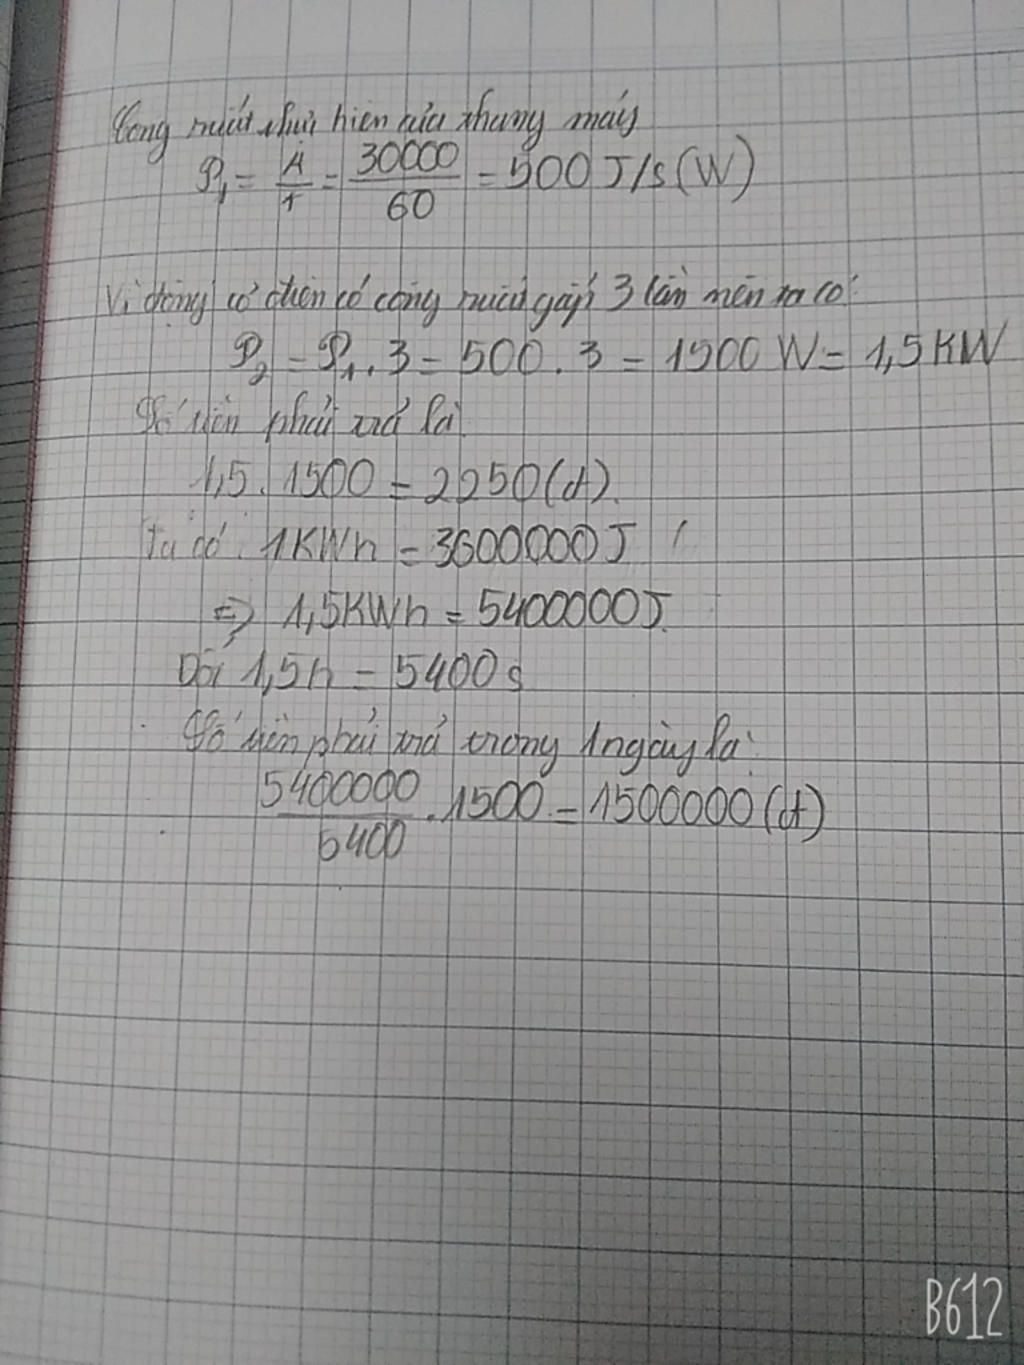 Công suất thực hiện của thang máy
P₁ = A/t = 30000/60 = 500 J/s (W)
Vì động cơ điện có công suất gấp 3 lần nên ta có:
P₂ = P₁ . 3 = 500 . 3 = 1500 W = 1,5 KW
Số tiền phải trả là
1,5 . 1500 = 2250 (đ).
Ta có : 1KWh = 3600000J
=> 1,5KWh = 5400000J.
Đổi 1,5h = 5400s
Số tiền phải trả trong 1 ngày là:
5400000/5400 . 1500 = 1500000 (đ)
B612